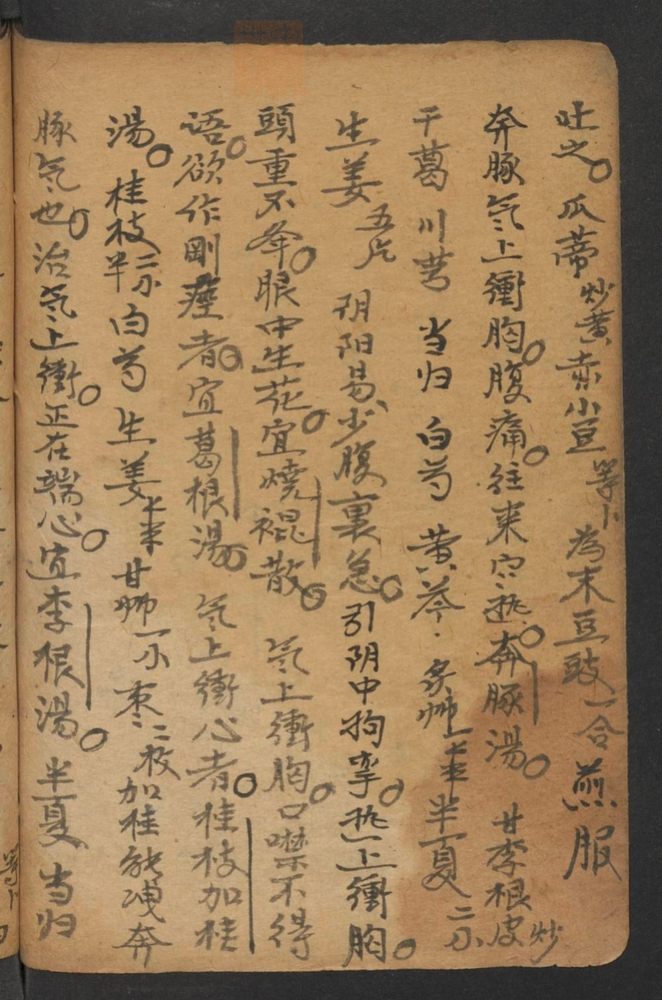 吐之。瓜蒂炒黄赤小豆等卜為末豆豉一合煎服
奔豚氣上衝胸。腹痛。往來寒热。奔豚湯。甘李根皮炒
干葛 川芎 当归 白芍 黄芩 炙草半 半夏二小
生姜五片 阴阳易。少腹裏急。引阴中拘挛。热上衝胸。
頭重不举。眼中生花。宜燒裩散。氣上衝胸。口噤不得
语。欲作刚痓者。宜葛根湯。氣上衝心者。桂枝加桂
湯。桂枝二小半 白芍 生姜 甘草一小 枣二枚 加桂能洩奔
豚氣也。治氣上衝。正在端心。宜李根湯。半夏 当归